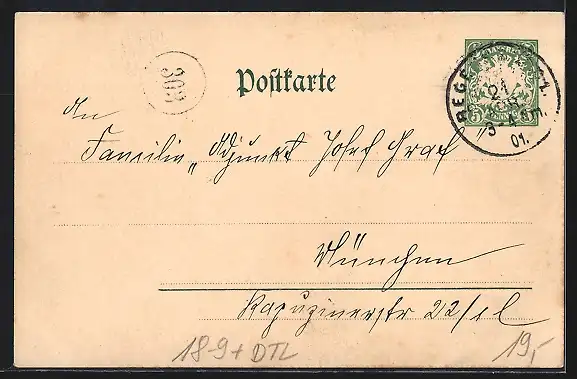 303
Postkarte
An
Familie „Adjunkt Josef Graf
München
Kapuzinerstr 22/I l
REGE 1.
21
3-4 Nm.
01.
18-9 + DTL
19,-